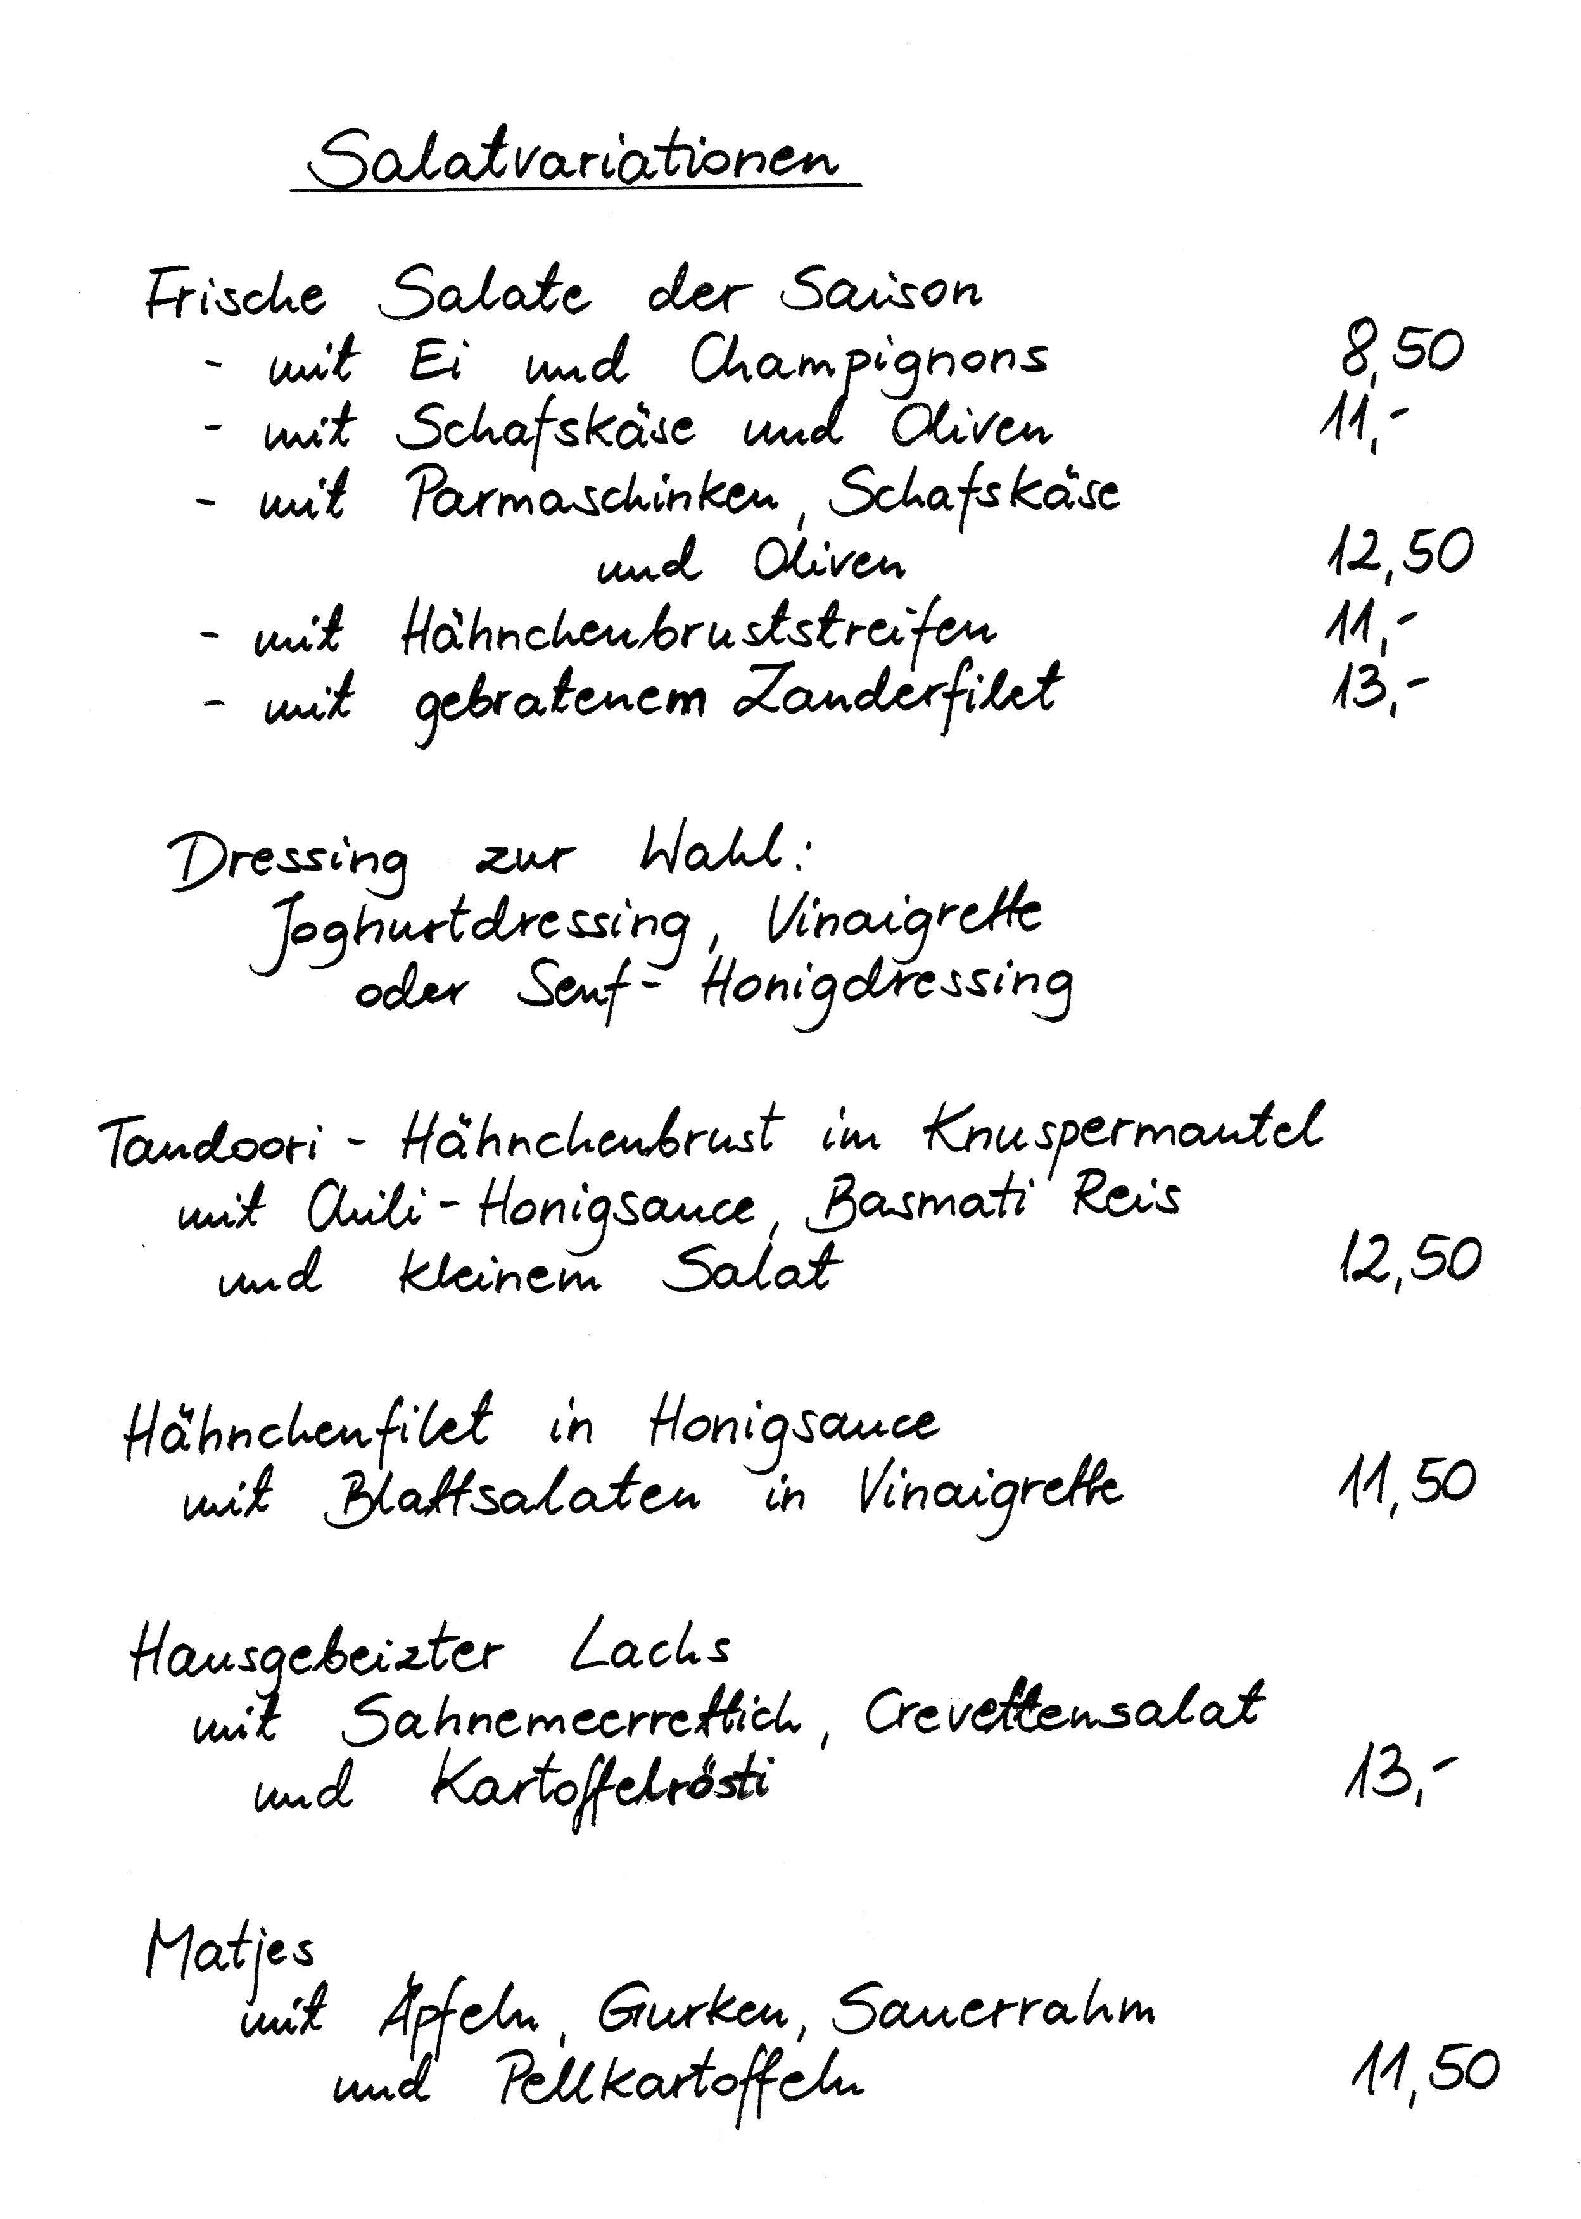 Salatvariationen
Frische Salate der Saison
- mit Ei und Champignons 8,50
- mit Schafskäse und Oliven 11,-
- mit Parmaschinken, Schafskäse
und Oliven 12,50
- mit Hähnchenbruststreifen 11,-
- mit gebratenem Zanderfilet 13,-
Dressing zur Wahl:
Joghurtdressing, Vinaigrette
oder Senf- Honigdressing
Tandoori - Hähnchenbrust im Knuspermantel
mit Chili - Honigsauce, Basmati Reis
und kleinem Salat 12,50
Hähnchenfilet in Honigsauce
mit Blattsalaten in Vinaigrette 11,50
Hausgebeizter Lachs
mit Sahnemeerrettich, Crevettensalat
und Kartoffelrösti 13,-
Matjes
mit Äpfeln, Gurken, Sauerrahm
und Pellkartoffeln 11,50